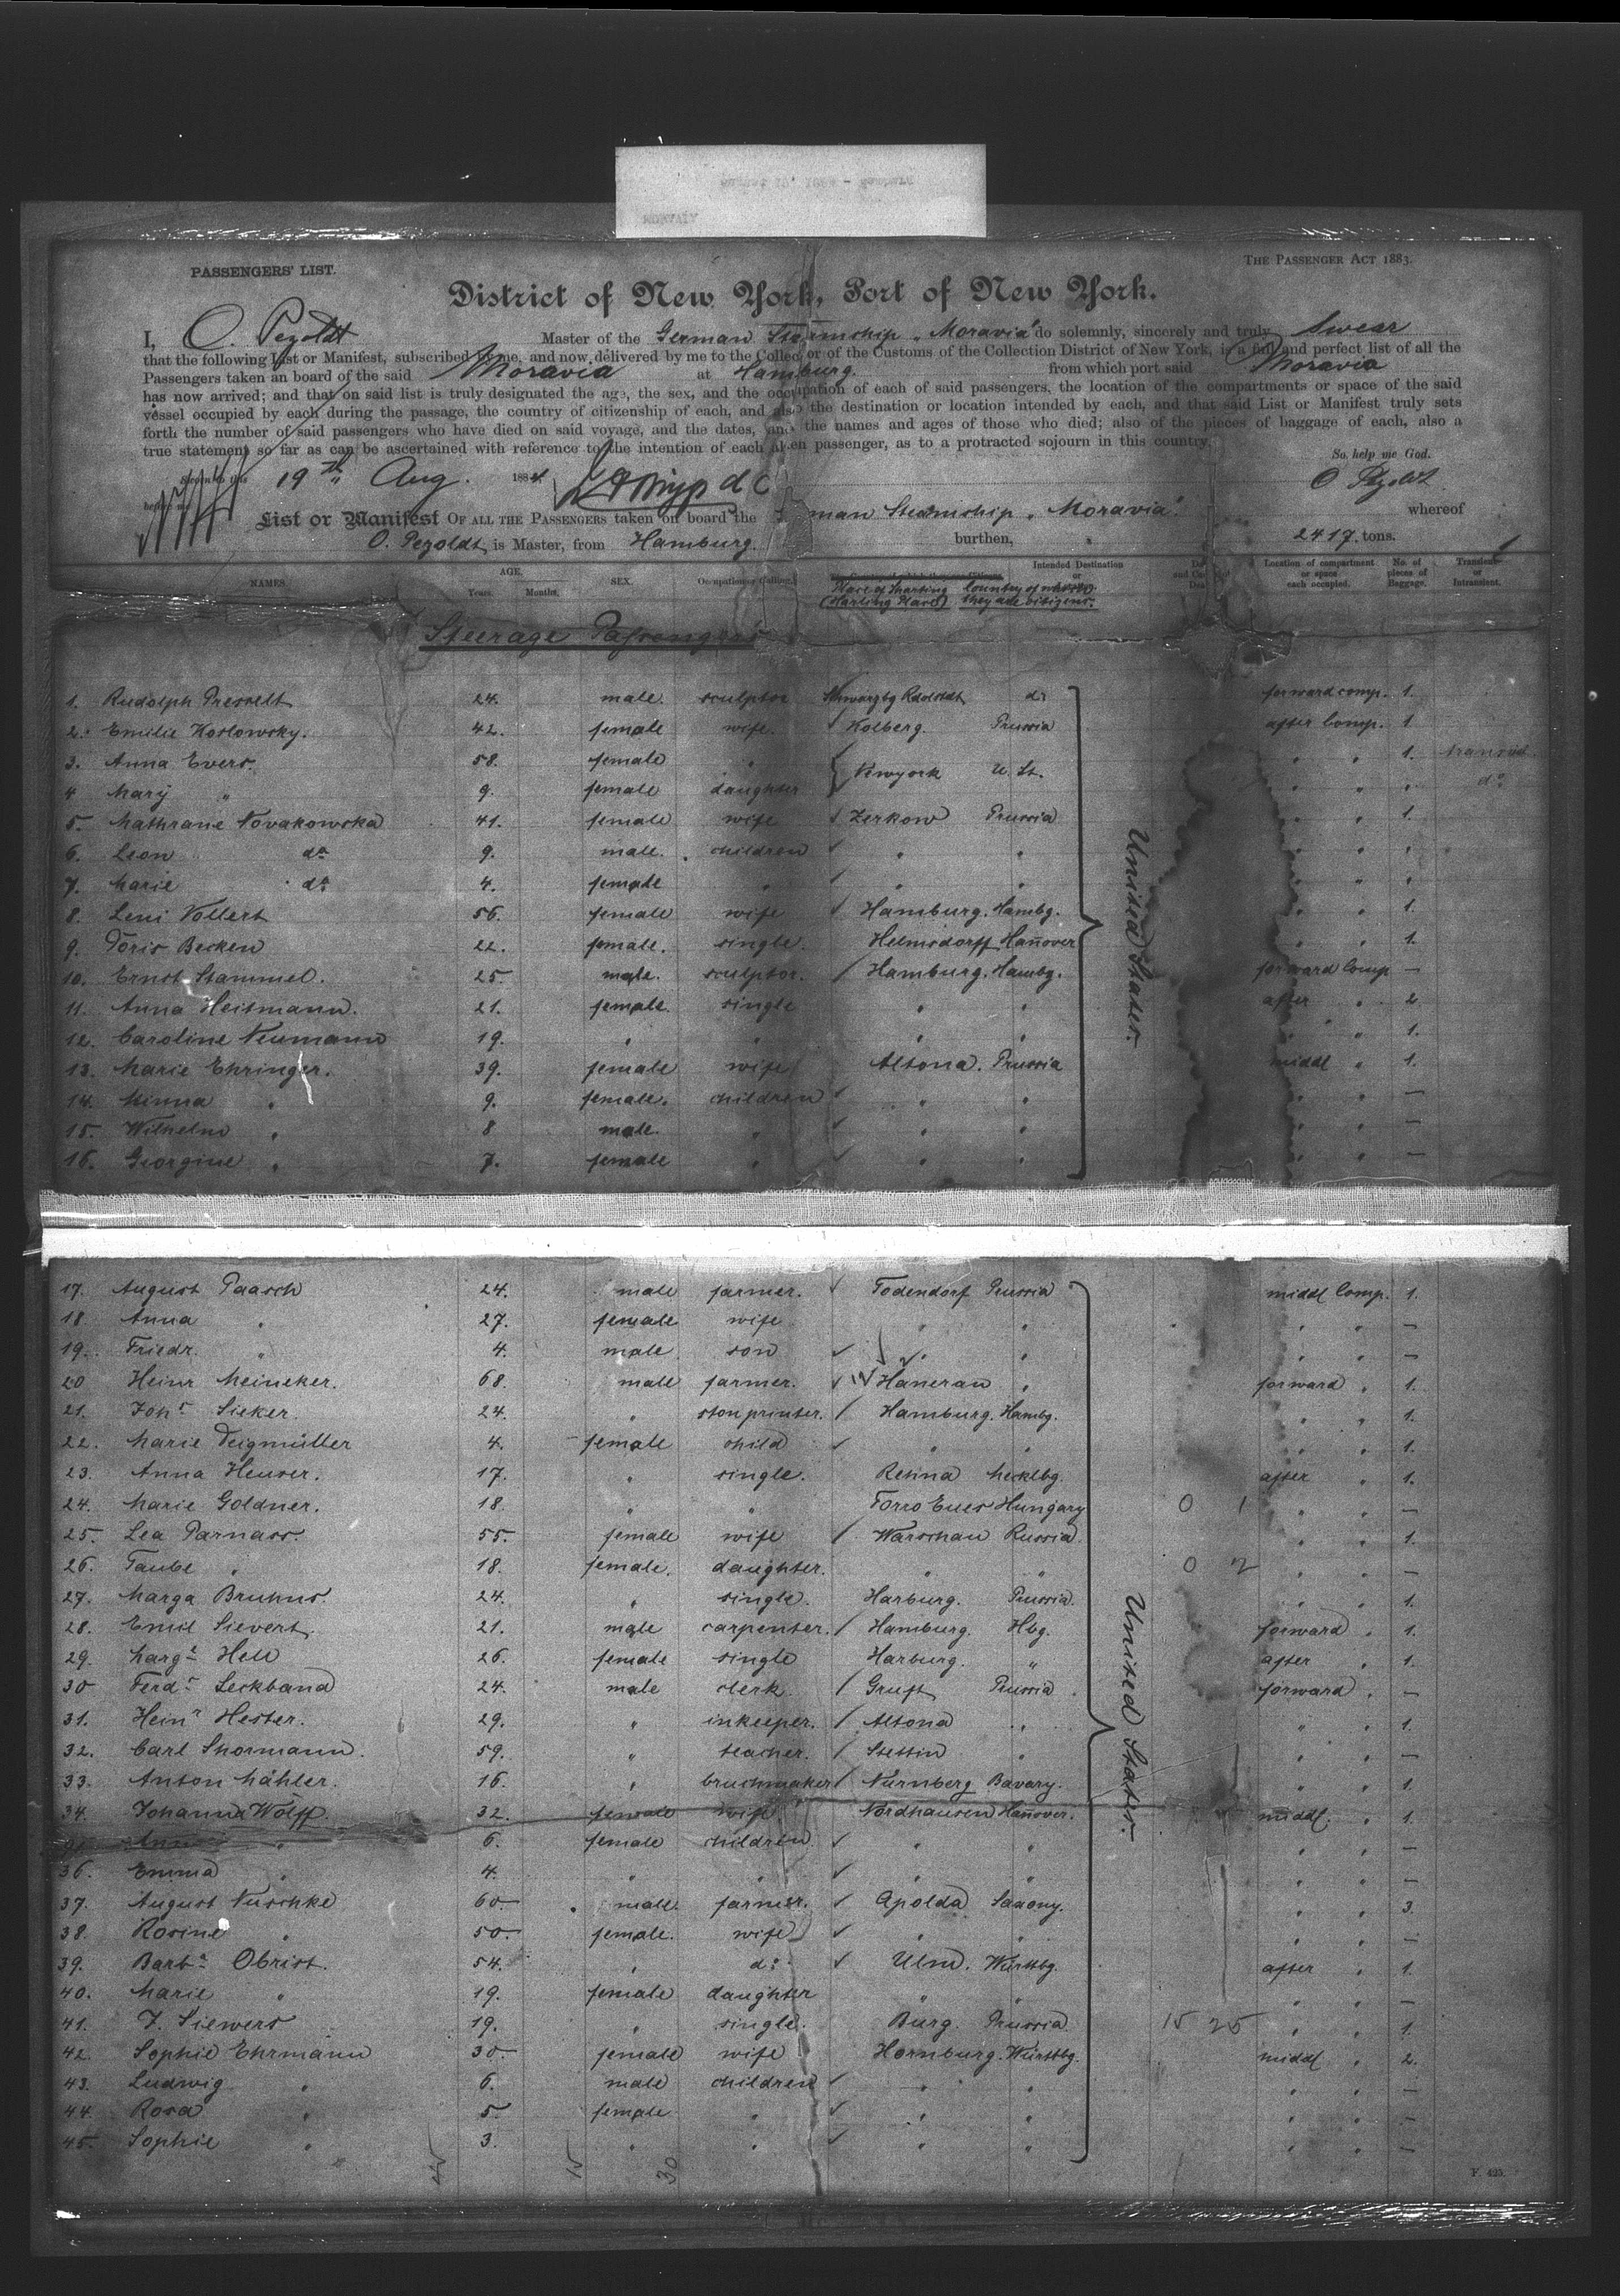 PASSENGERS' LIST.
THE PASSENGER ACT 1883.
District of New York, Port of New York.
I, O. Pezoldt Master of the German Steamship „Moravia" do solemnly, sincerely and truly swear
that the following List or Manifest, subscribed by me, and now delivered by me to the Collector of the Customs of the Collection District of New York, is a full and perfect list of all the
Passengers taken an board of the said Moravia at Hamburg. from which port said Moravia
has now arrived; and that on said list is truly designated the age, the sex, and the occupation of each of said passengers, the location of the compartments or space of the said
vessel occupied by each during the passage, the country of citizenship of each, and also the destination or location intended by each, and that said List or Manifest truly sets
forth the number of said passengers who have died on said voyage, and the dates, and the names and ages of those who died; also of the pieces of baggage of each, also a
true statement so far as can be ascertained with reference to the intention of each alien passenger, as to a protracted sojourn in this country.
So help me God.
Sworn to this 19th Aug. 1884. O Pezoldt
before me
List or Manifest OF ALL THE PASSENGERS taken on board the German Steamship „Moravia" whereof
O. Pezoldt, is Master, from Hamburg. burthen, 2417. tons.
NAMES. AGE. Years. Months. SEX. Occupation or Calling. Place of Starting (Starting Place) Country of which they are citizens. Intended Destination or Location of compartment or space each occupied. No. of pieces of Baggage. Transient or Intransient.
Steerage Passengers
1. Rudolph Presselt 24. male. sculptor Schwarzbg Rdolstdt do forward comp. 1.
2. Emilie Koslowsky. 42. female wife. Kolberg. Prussia after Comp. 1.
3. Anna Evers. 58. female " Newyork U. St. " " 1. transient
4 Mary " 9. female daughter " " " do
5. Mathranie Novakowska 41. female wife Zerkow Prussia " " 1.
6. Leon do 9. male. children " " " " "
7. Marie do 4. female " " " " " "
8. Leni Vollert 56. female wife Hamburg. Hambg. " " 1.
9. Doris Becken 22. female. single. Helmsdorff Hañover " " 1.
10. Ernst Stammel. 25 male. sculptor. Hamburg. Hambg. forward Comp —
11. Anna Heitmann. 21. female. single " " after " 2
12. Caroline Neumann 19. " " " " " " 1.
13. Marie Ehringer. 39. female wife Altona. Prussia middl " 1.
14. Minna " 9. female. children " " " " —
15. Wilhelm " 8 male. " " " " " —
16. Georgine " 7. female " " " " " —
United States.
17. August Paasch 24. male farmer. Todendorf Prussia middl Comp. 1.
18. Anna " 27. female wife " " " " —
19. Friedr. " 4. male. son " " " " —
20 Heinr Meineker. 68. male farmer. Hanerau " forward " 1.
21. Johs Sieker. 24. " stonprinter. Hamburg. Hambg. " " 1.
22. Marie Deigmüller 4. female child " " " " 1.
23. Anna Heuser. 17. " single. Retina Mecklbg. after " 1.
24. Marie Goldner. 18. " " Torro Eues Hungary 0 1 " " —
25. Lea Parnass. 55. female wife Warschau Russia. " " 1.
26. Taube " 18. female. daughter. " " 0 2 " " —
27. Marga Bruhns. 24. " single. Harburg. Prussia. " " 1.
28. Emil Sievert. 21. male carpenter. Hamburg. Hbg. forward " 1.
29. Marga Hell 26. female single Harburg. " after " 1.
30 Ferdr Leckband 24. male clerk. Gruft Prussia forward " —
31. Heinr Hester. 29. " inkeeper. Altona " " " 1.
32. Carl Thormann. 59. " teacher. Stettin " " " —
33. Anton Mähler. 16. " bruchmaker Nürnberg Bavary. " " 1.
34. Johanna Wolff. 32. female wife Nordhausen Hañover. middl. " 1.
Ann " 6. female children. " " " " —
36. Emma " 4. " " " " " " —
37. August Nuschke 60 male. farmer. Apolda Saxony. " " 3.
38. Rosine " 50. female. wife " " " " —
39. Barba Obrist. 54. " do Ulm. Württbg. after " 1.
40. Marie " 19. female daughter " " " " —
41. J. Siewers 19. " single. Burg. Prussia 15 25 " " 1.
42. Sophie Ehrmann 30 female wife Hornburg. Württbg. middl " 2.
43. Ludwig " 6. male children " " " " —
44. Rosa " 5. female " " " " " —
45. Sophie " 3. " " " " " " —
United States.
45 15 30
F. 425.